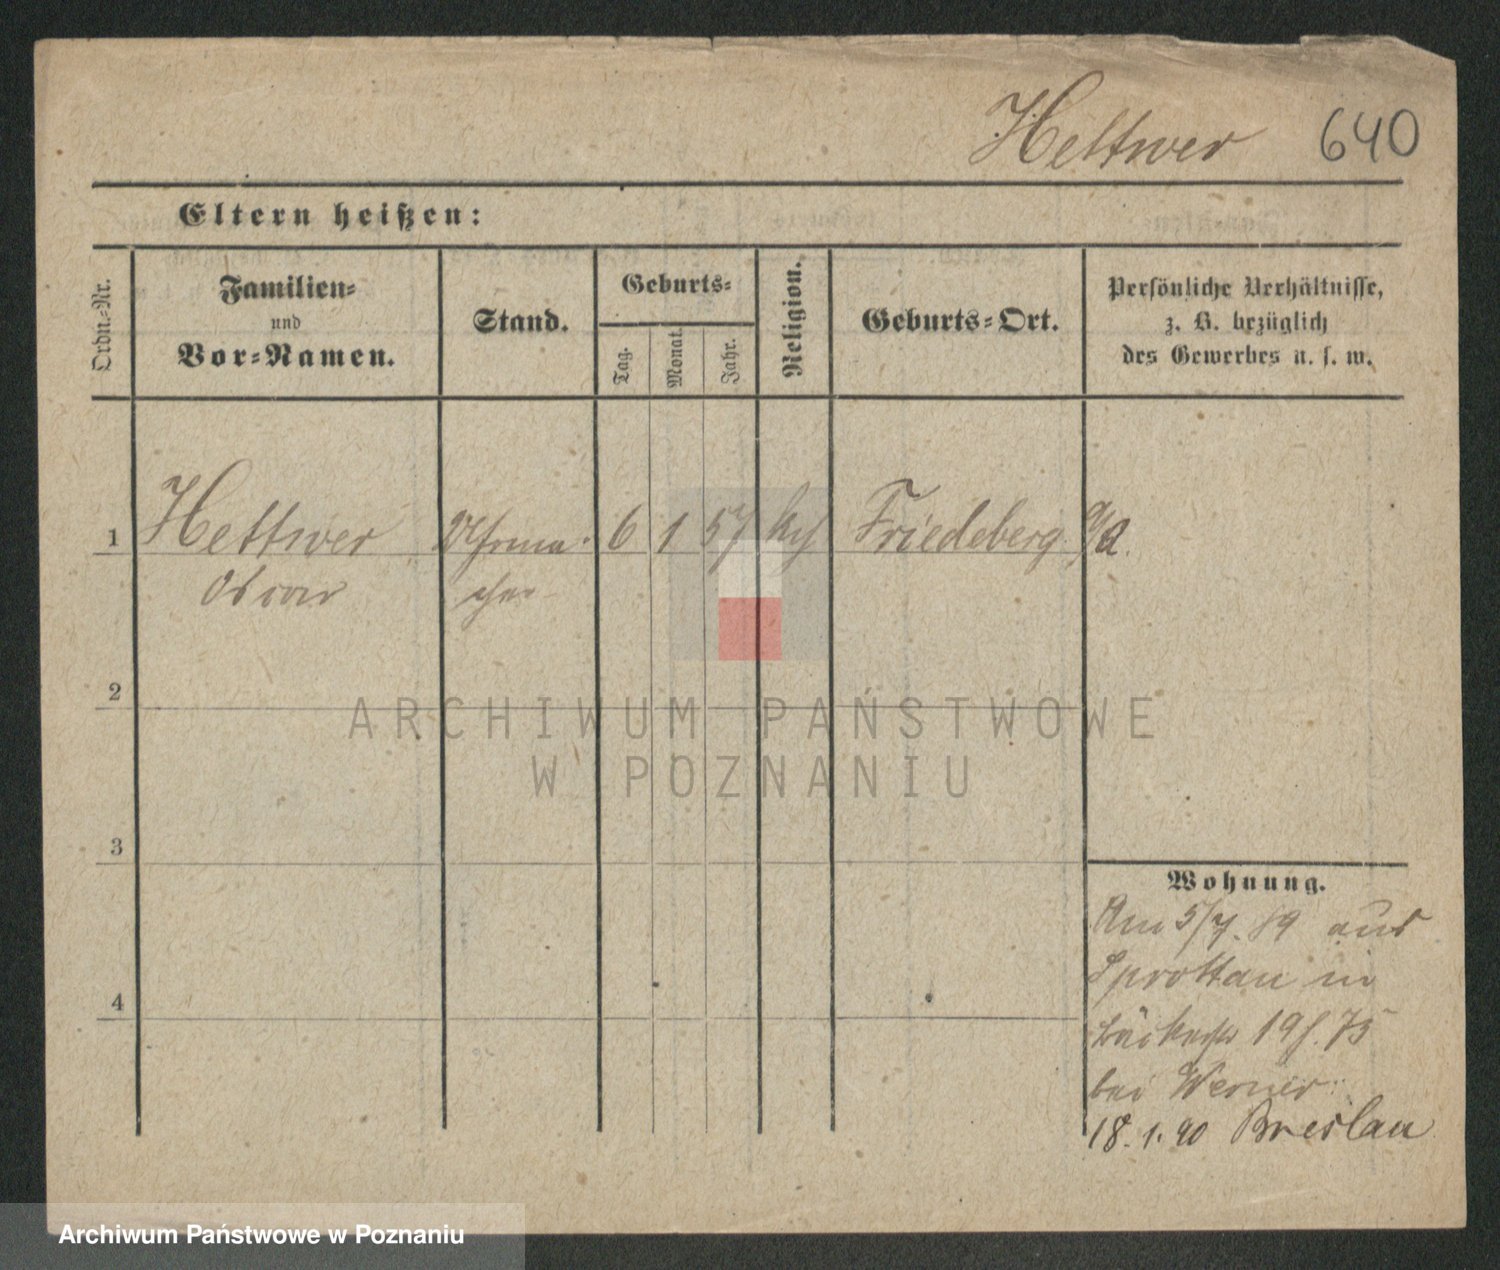 Hettwer 640
Eltern heißen:
Ordn.-Nr.
Familien-
und
Vor-Namen.
Stand.
Geburts-
Tag.
Monat.
Jahr.
Religion.
Geburts-Ort.
Persönliche Verhältnisse,
z. B. bezüglich
des Gewerbes u. s. w.
1 Hettwer Uhrma- 6 1 57 kth Friedeberg a/Q.
Oscar cher
2
3
4
Wohnung.
Am 5/7. 89 aus
Sprottau in
19 75
bei Werner
18. 1. 90 Breslau
ARCHIWUM PAŃSTWOWE
W POZNANIU
Archiwum Państwowe w Poznaniu